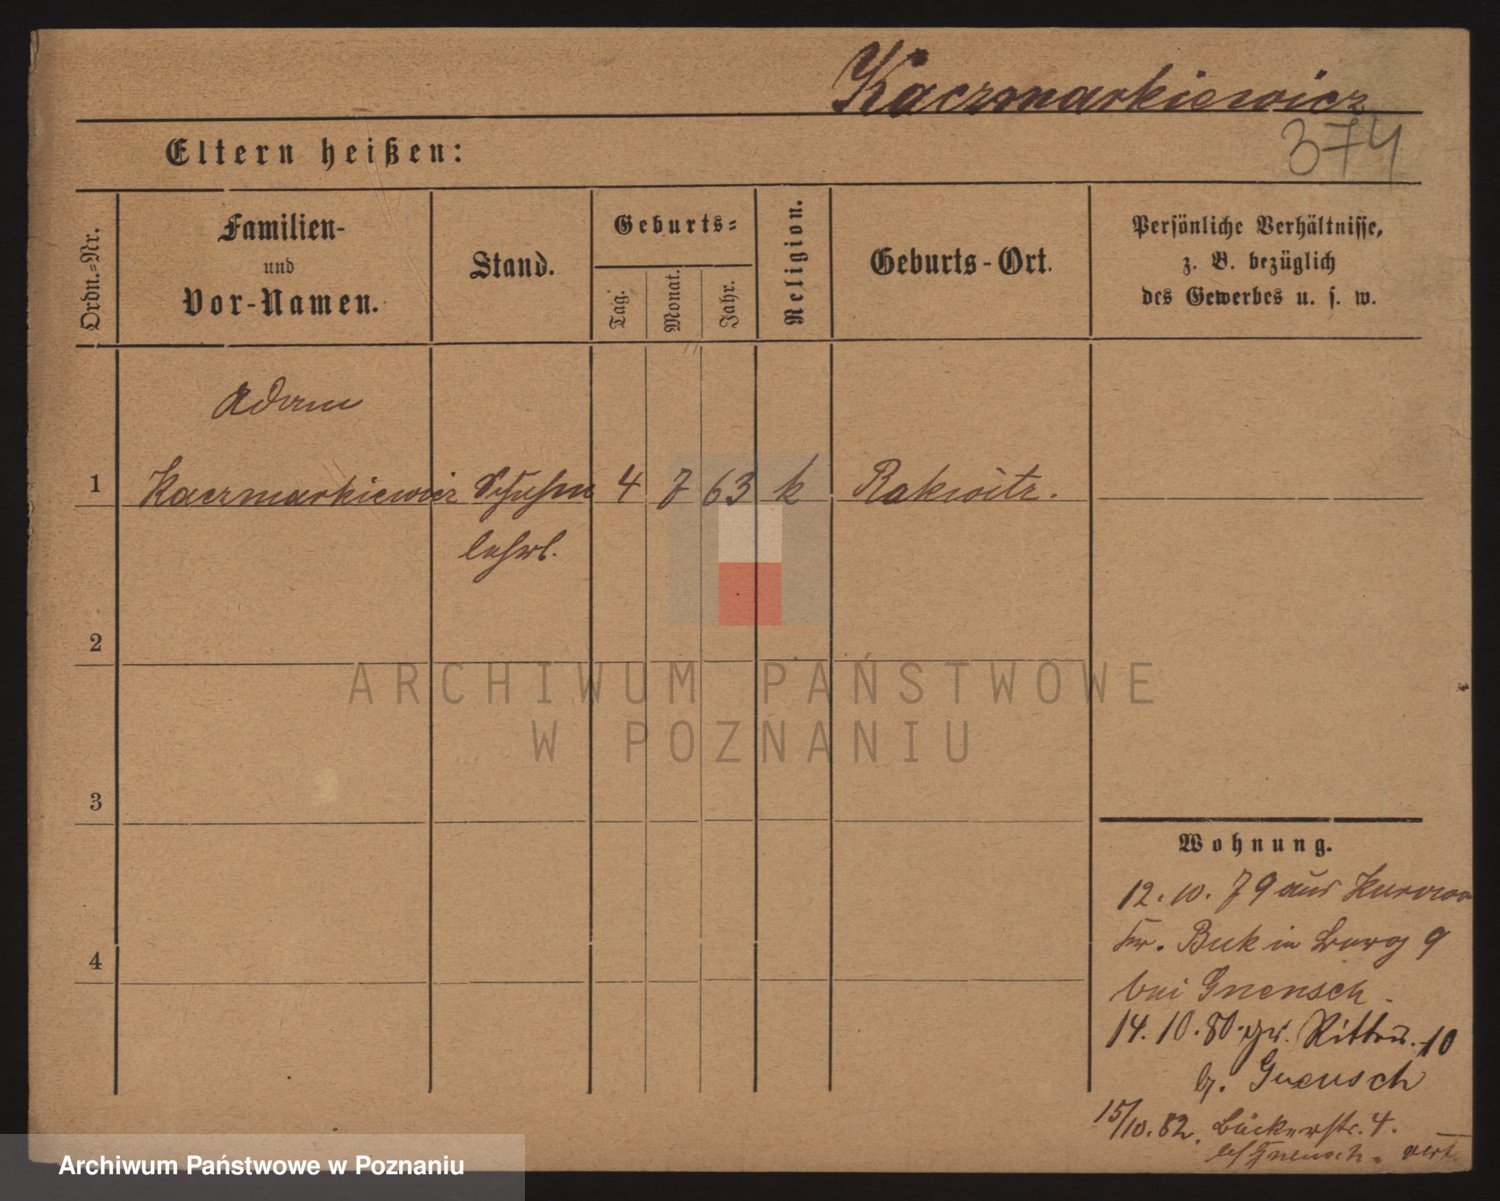 Kaczmarkiewicz
374
Eltern heißen:
Ordn.-Nr.
Familien-
und
Vor-Namen.
Stand.
Geburts-
Tag.
Monat.
Jahr.
Religion.
Geburts-Ort.
Persönliche Verhältnisse,
z. B. bezüglich
des Gewerbes u. s. w.
Adam
1 Kaczmarkiewicz Schuhm 4 7 63 k Rakwitz.
lehrl.
2
ARCHIWUM PAŃSTWOWE
W POZNANIU
3
4
Wohnung.
12. 10. 79 aus
Kr. Buk in 9
bei Gnensch.
14. 10. 80. Ritterst. 10
b. Gnensch
15/10. 82. Bäckerstr. 4.
b/ Gnensch.
Archiwum Państwowe w Poznaniu